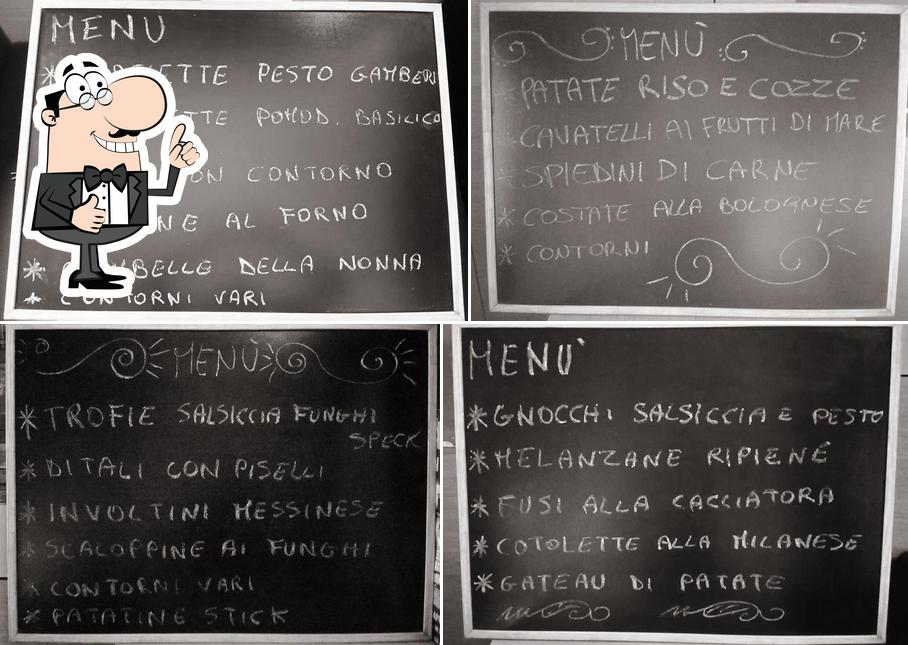 MENU
* ETTE PESTO GAMBERI
TTE POMOD. BASILICO
ON CONTORNO
NE AL FORNO
* BELLE DELLA NONNA
* CONTORNI VARI
MENÙ
* PATATE RISO E COZZE
* CAVATELLI AI FRUTTI DI MARE
* SPIEDINI DI CARNE
* COSTATE ALLA BOLOGNESE
* CONTORNI
MENÙ
* TROFIE SALSICCIA FUNGHI
SPECK
* DITALI CON PISELLI
* INVOLTINI MESSINESE
* SCALOPPINE AI FUNGHI
* CONTORNI VARI
* PATATINE STICK
MENU'
* GNOCCHI SALSICCIA E PESTO
* MELANZANE RIPIENE
* FUSI ALLA CACCIATORA
* COTOLETTE ALLA MILANESE
* GATEAU DI PATATE